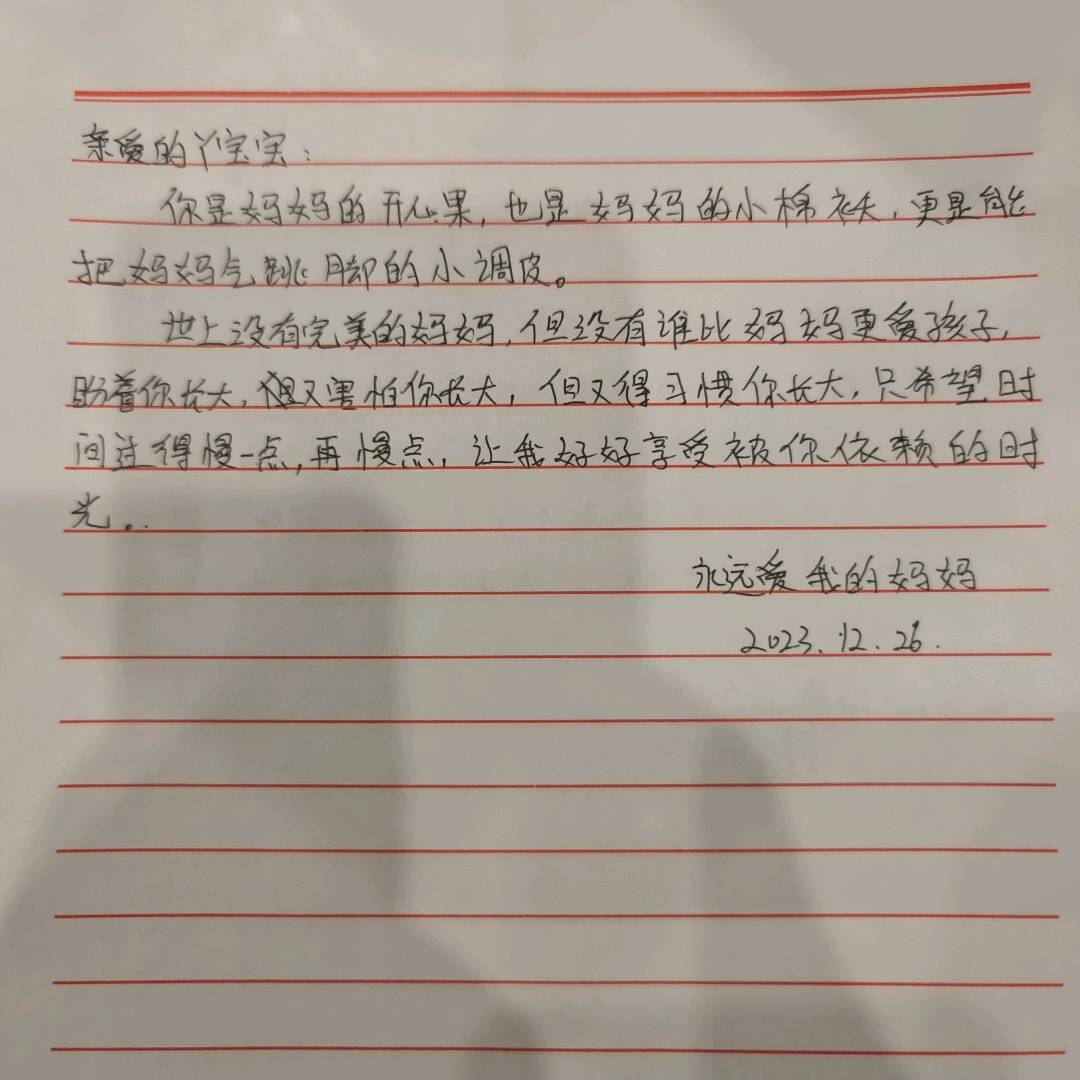 亲爱的丫宝宝:
你是妈妈的开心果,也是妈妈的小棉袄,更是能
把妈妈气跳脚的小调皮。
世上没有完美的妈妈,但没有谁比妈妈更爱孩子,
盼着你长大,但又害怕你长大,但又得习惯你长大,只希望时
间过得慢一点,再慢点,让我好好享受被你依赖的时
光。..
永远爱我的妈妈
2023.12.26.